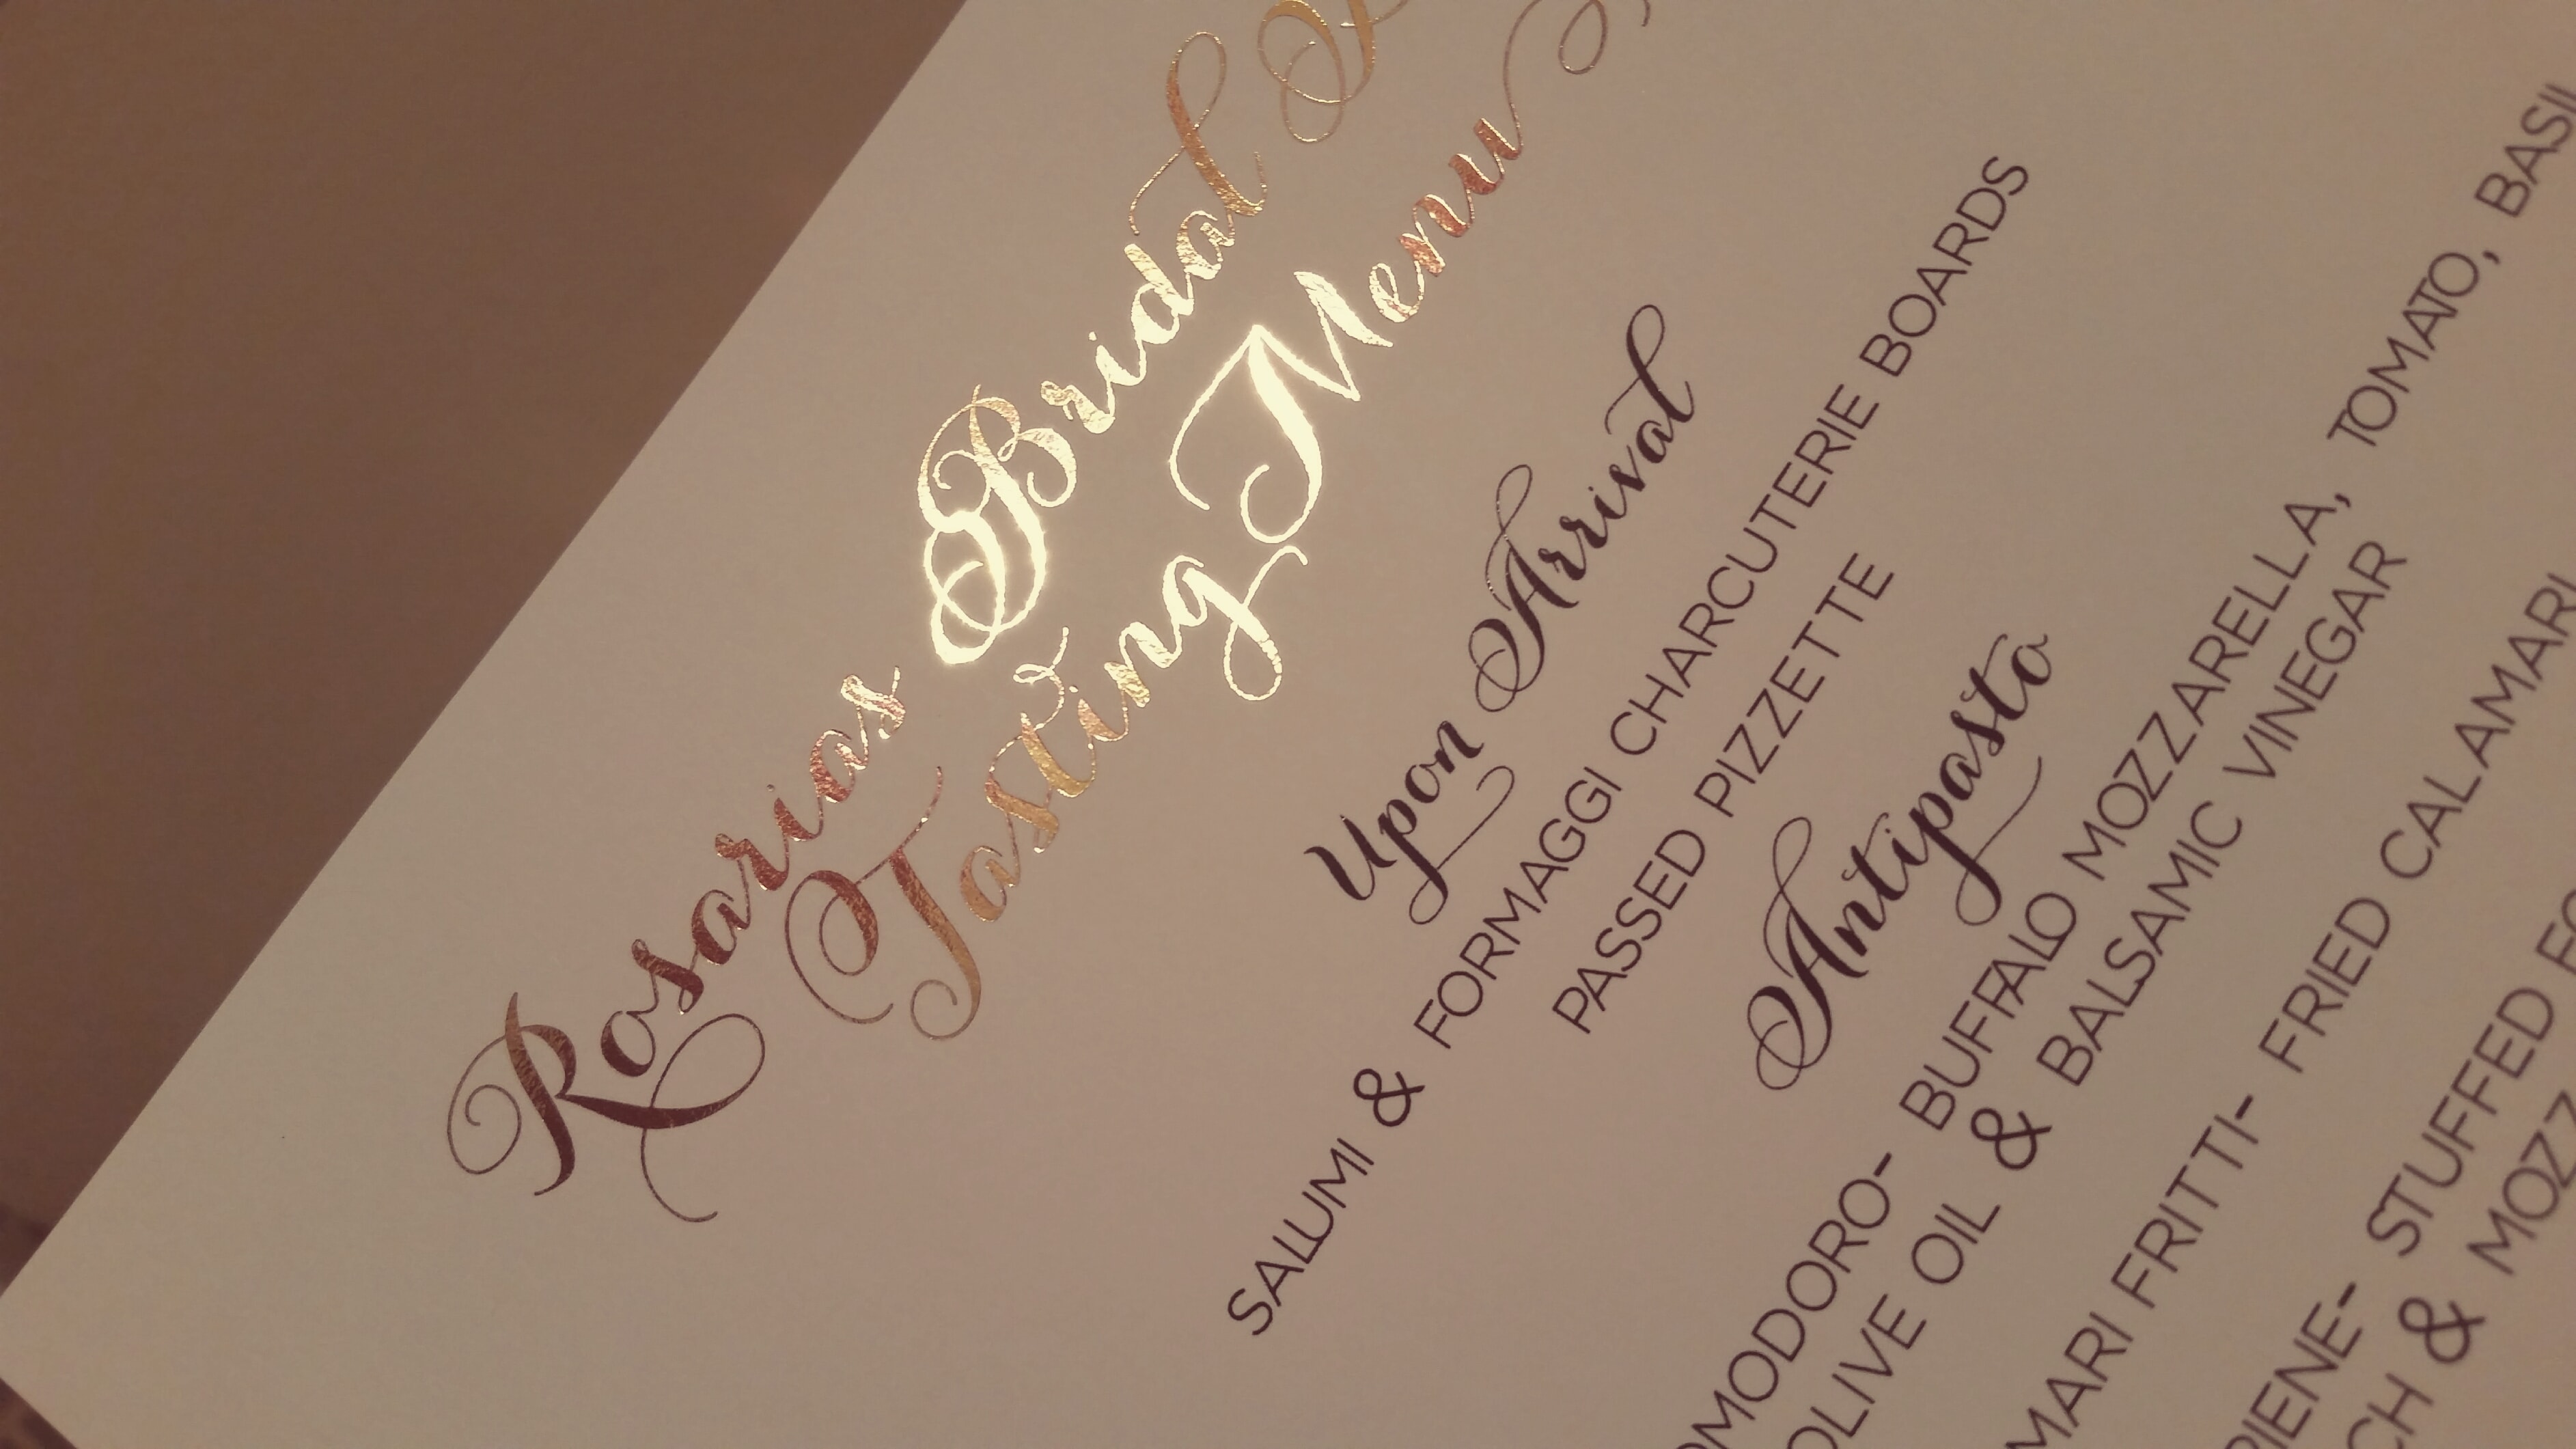 Rosarias Bridal
Tasting Menu
Upon Arrival
SALUMI & FORMAGGI CHARCUTERIE BOARDS
PASSED PIZZETTE
Antipasto
BUFFALO MOZZARELLA, TOMATO,
OLIVE OIL & BALSAMIC VINEGAR
FRITTI- FRIED CALAMARI
STUFFED
&